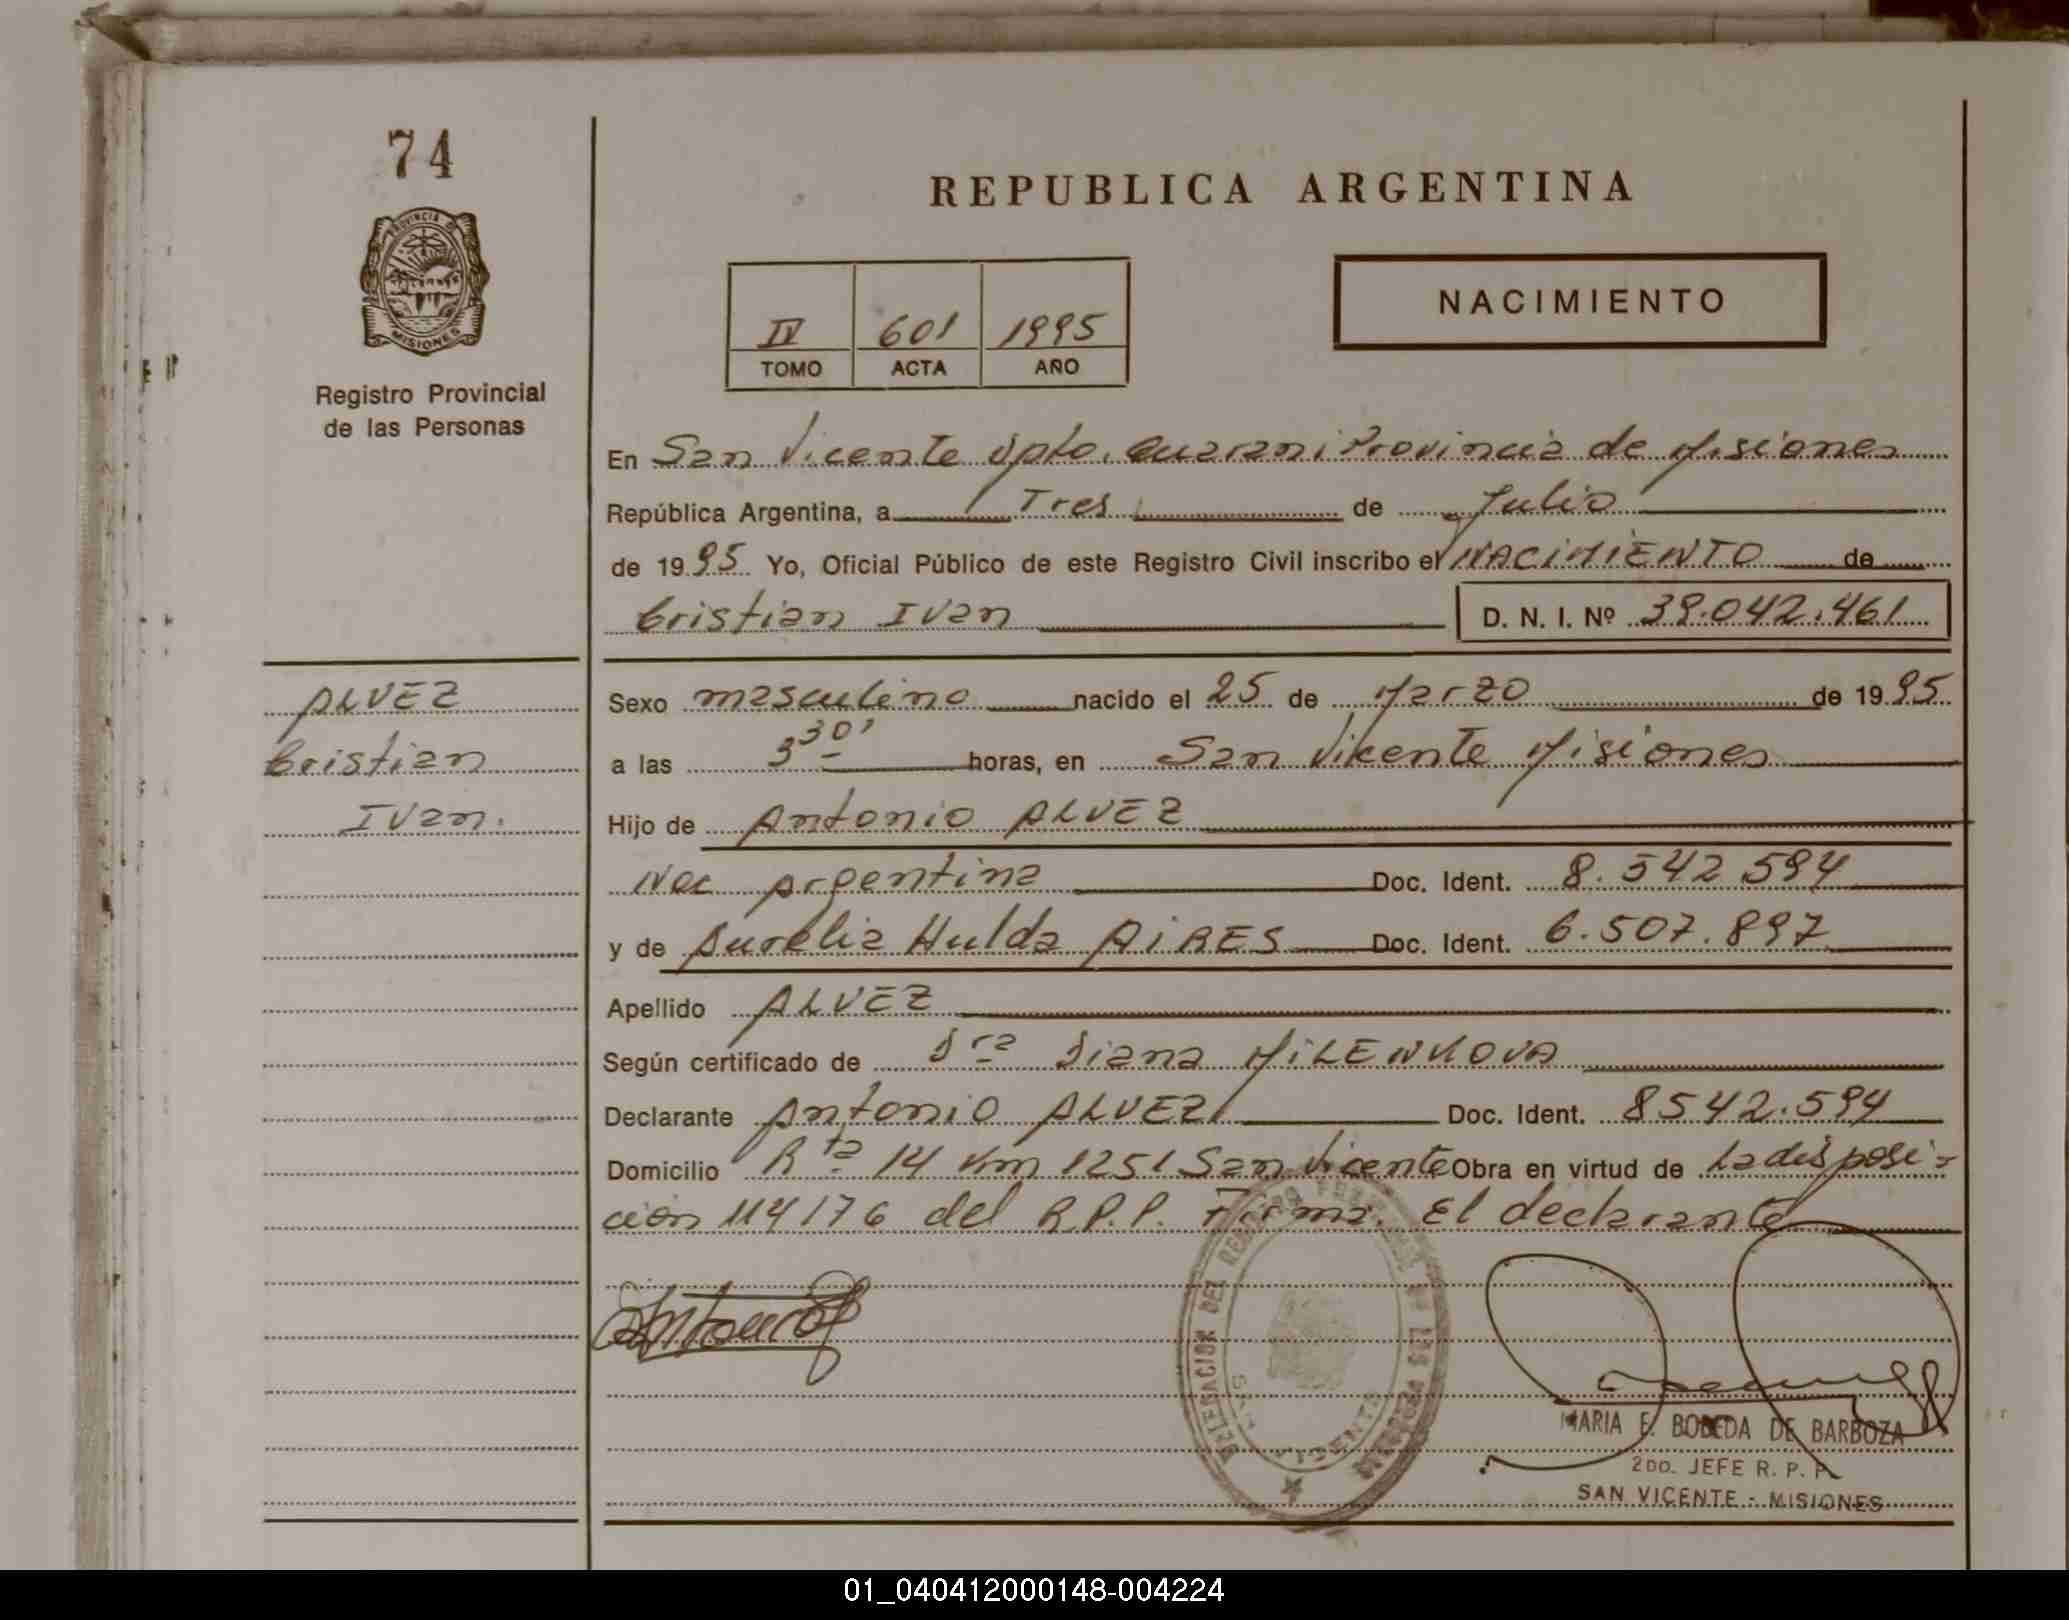 74
REPUBLICA ARGENTINA
PROVINCIA DE
MISIONES
NACIMIENTO
IV 601 1995
TOMO ACTA AÑO
Registro Provincial
de las Personas
En San Vicente Dpto. Guarani Provincia de Misiones
República Argentina, a Tres de Julio
de 1995 Yo, Oficial Público de este Registro Civil inscribo el NACIMIENTO de
Cristian Ivan D. N. I. Nº 39.042.461
ALVEZ
Cristian
Ivan.
Sexo masculino nacido el 25 de Marzo de 1995
a las 3 30' horas, en San Vicente Misiones
Hijo de Antonio ALVEZ
Nac Argentina Doc. Ident. 8.542.594
y de Aurelia Hulda AiRES Doc. Ident. 6.507.897
Apellido ALVEZ
Según certificado de Dra Diana MiLENKOVA
Declarante Antonio ALVEZ Doc. Ident. 8542.594
Domicilio Rta 14 Km 1251 San Vicente Obra en virtud de La disposi-
cion 114/76 del R.P.P. Firma. El declarante
DELEGACION DEL REGISTRO PROVINCIAL DE LAS PERSONAS
SAN VICENTE
MARIA E. BOBEDA DE BARBOZA
2DO. JEFE R. P. P.
SAN VICENTE - MISIONES
01_040412000148-004224